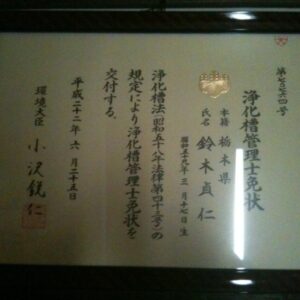 浄化槽管理士免状
本籍 栃木県
氏名 鈴木貞仁
昭和五十九年 三月十七日生
浄化槽法(昭和五十八年法律第四十三号)の
規定により浄化槽管理士免状を
交付する。
平成二十二年 六月二十五日
環境大臣 小沢鋭仁